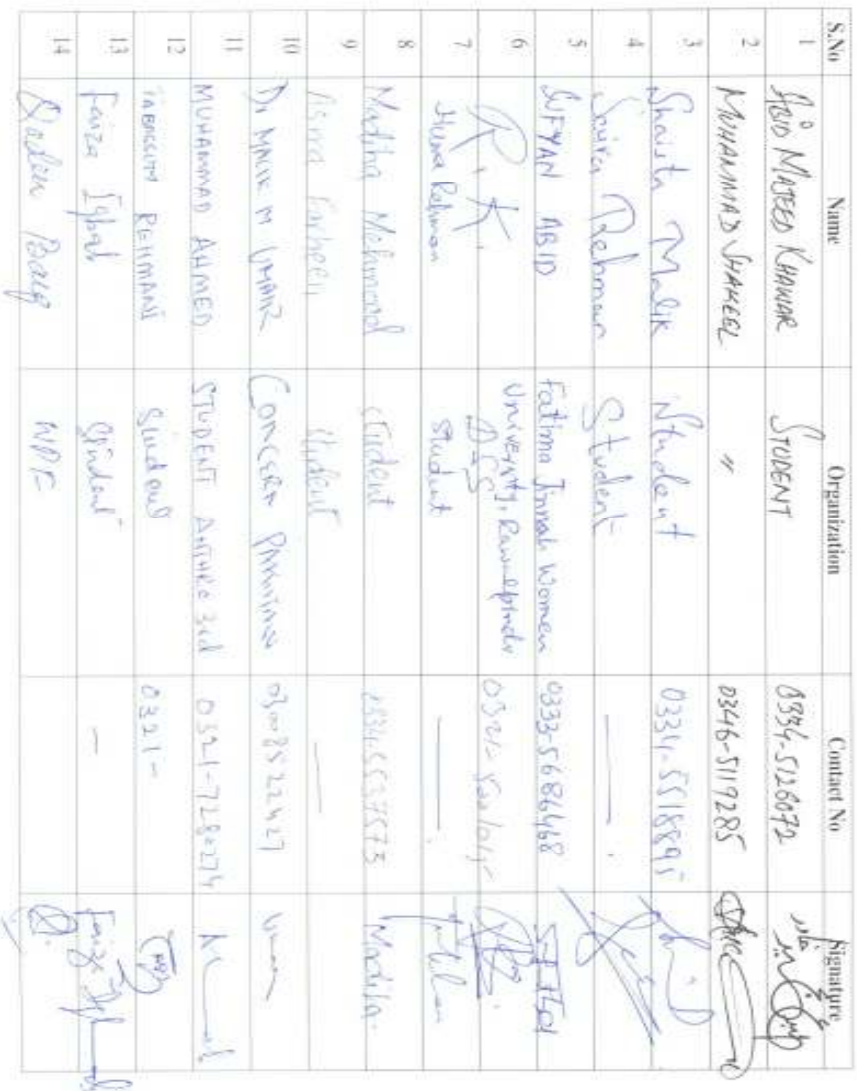 S.No Name Organization Contact No Signature
1 ABID MAJEED KHAWAR STUDENT 0334-5126072
2 MUHAMMAD SHAKEEL " 0346-5119285
3 Shaista Malik Student 0334-5518895
4 Saira Rehman Student —
5 SUFYAN ABID Fatima Jinnah Women 0333-5686468
University, Rawalpindi
6 R.K. DSS 0321-
7 Huma Rehman Student —
8 Madiha Mehmood Student 0334-5537573 Madiha
9 Asma Student —
10 Dr MALIK M UMAIR CONCERN PAKISTAN 03008522427
11 MUHAMMAD AHMED STUDENT ANTHRO 3rd 0321-7280274
12 TABASSUM REHMANI Student 0321-
13 Faiza Iqbal Student — Faiza Iqbal
14 Baig WPF